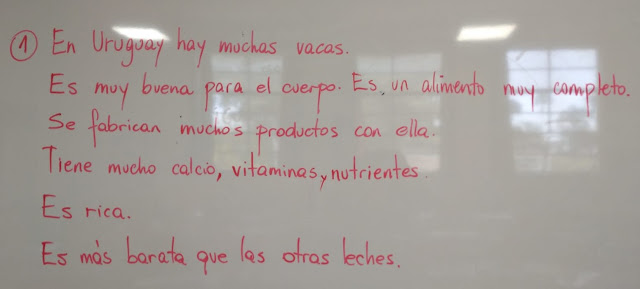 ① En Uruguay hay muchas vacas.
Es muy buena para el cuerpo. Es un alimento muy completo.
Se fabrican muchos productos con ella.
Tiene mucho calcio, vitaminas, y nutrientes.
Es rica.
Es más barata que las otras leches.